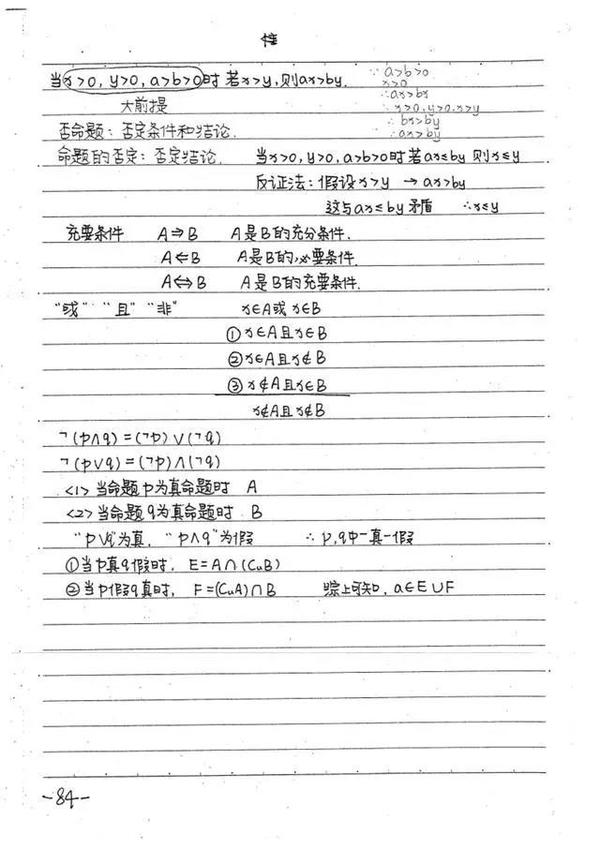 当x>0, y>0, a>b>0时 若x>y, 则ax>by.
∵ a>b>0
x>0
∴ax>bx
∵ x>0, y>0, x>y
∴ bx>by
∴ax>by
大前提
否命题: 否定条件和结论.
命题的否定: 否定结论. 当x>0, y>0, a>b>0时 若ax≤by 则x≤y
反证法: 假设x>y → ax>by
这与ax≤by矛盾 ∴x≤y
充要条件 A⇒B A是B的充分条件.
A⇐B A是B的必要条件.
A⇔B A是B的充要条件.
"或" "且" "非" x∈A或 x∈B
①x∈A且x∈B
②x∈A且x∉B
③x∉A且x∈B
x∉A且x∉B
¬(p∧q)=(¬p)∨(¬q)
¬(p∨q)=(¬p)∧(¬q)
<1>当命题p为真命题时 A
<2>当命题q为真命题时 B
"p∨q"为真. "p∧q"为假 ∴ p,q中一真一假
①当p真q假时, E=A∩(CuB)
②当p假q真时, F=(CuA)∩B 综上可知, a∈E∪F
-84-